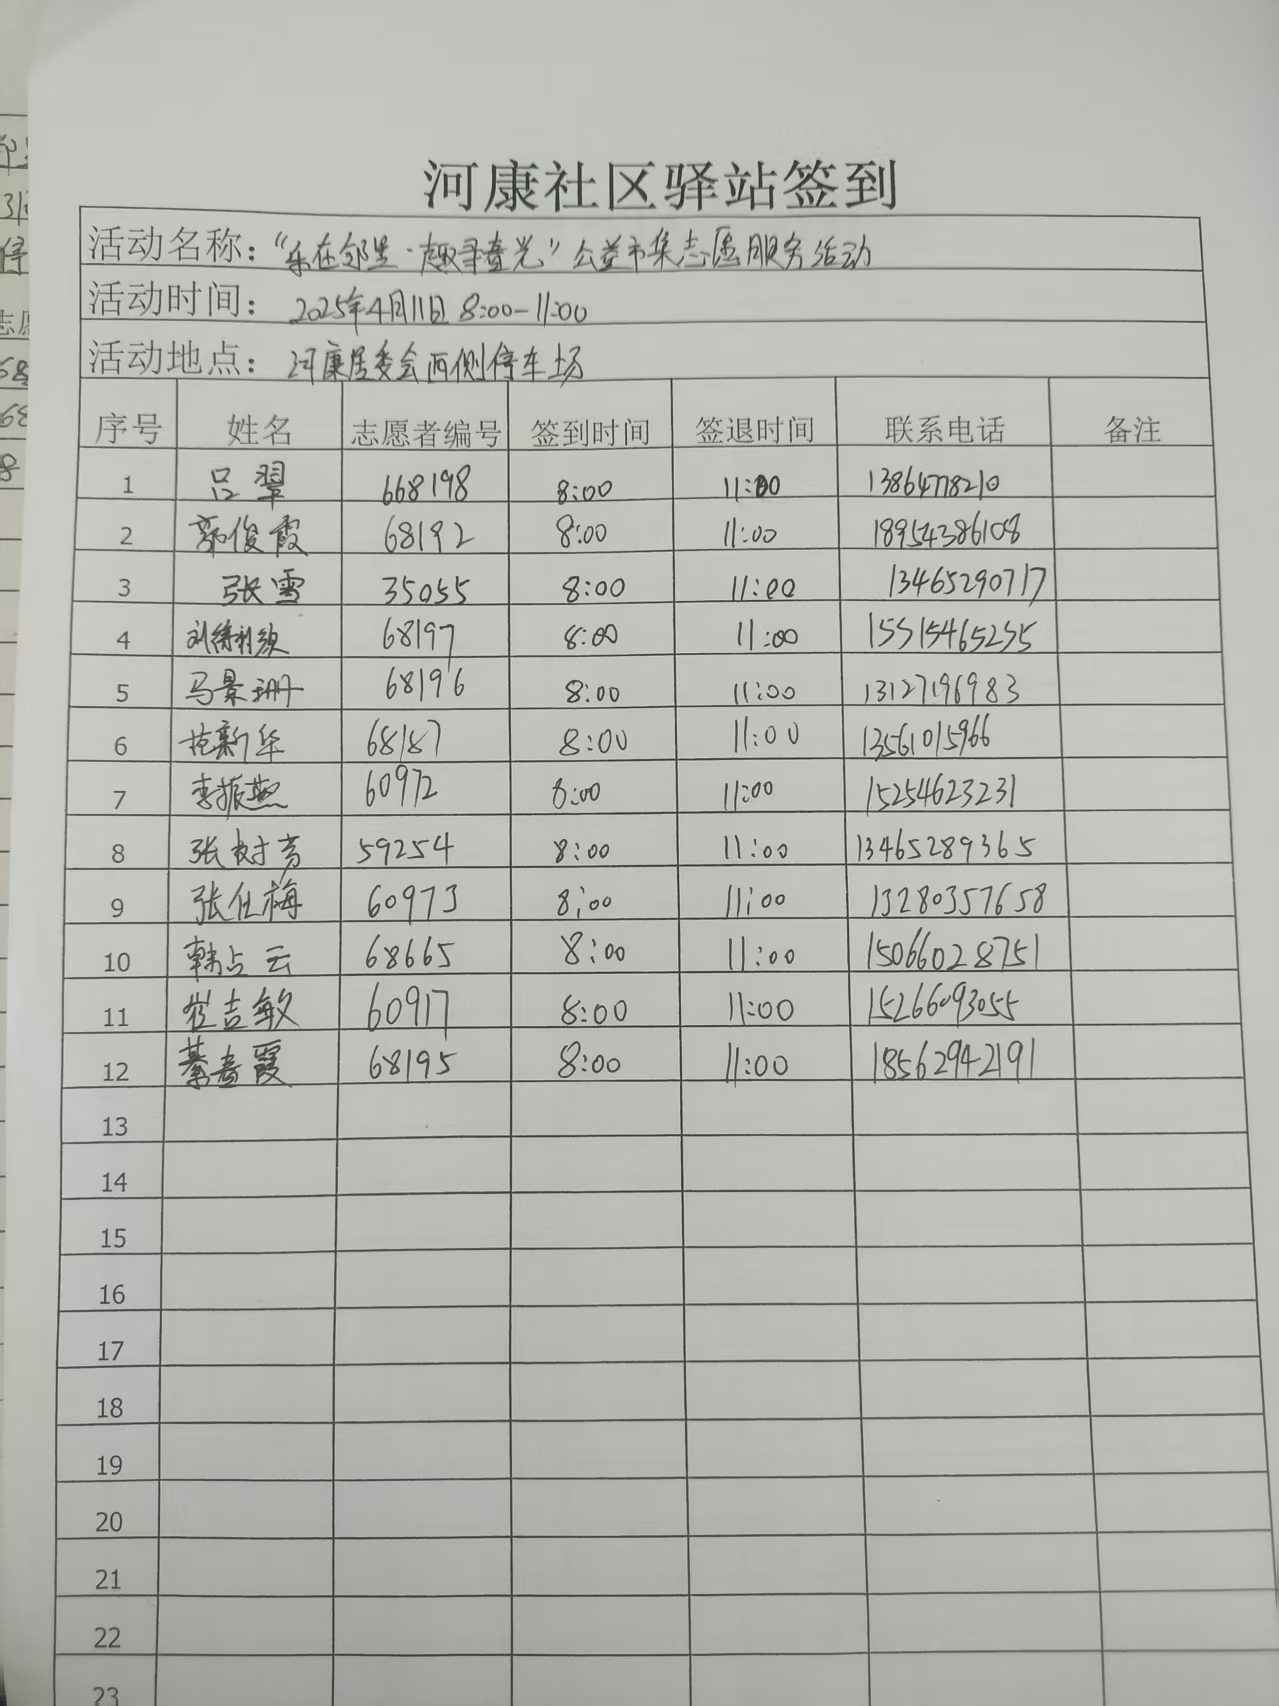 河康社区驿站签到
活动名称：“乐在邻里·趣寻春光”公益市集志愿服务活动
活动时间：2025年4月11日 8:00-11:00
活动地点：河康居委会西侧停车场
序号 姓名 志愿者编号 签到时间 签退时间 联系电话 备注
1 吕翠 668198 8:00 11:00 13864778210
2 郭俊霞 68192 8:00 11:00 18954386108
3 张雪 35055 8:00 11:00 13465290717
4 68197 8:00 11:00 15515465255
5 马景珊 68196 8:00 11:00 13127196983
6 范新华 68187 8:00 11:00 13561015966
7 李振燕 60972 8:00 11:00 15254623231
8 张树芳 59254 8:00 11:00 13465289365
9 张仕梅 60973 8:00 11:00 13280357658
10 韩占云 68665 8:00 11:00 15066028751
11 崔吉敏 60917 8:00 11:00 15266093055
12 綦春霞 68195 8:00 11:00 18562942191
13
14
15
16
17
18
19
20
21
22
23